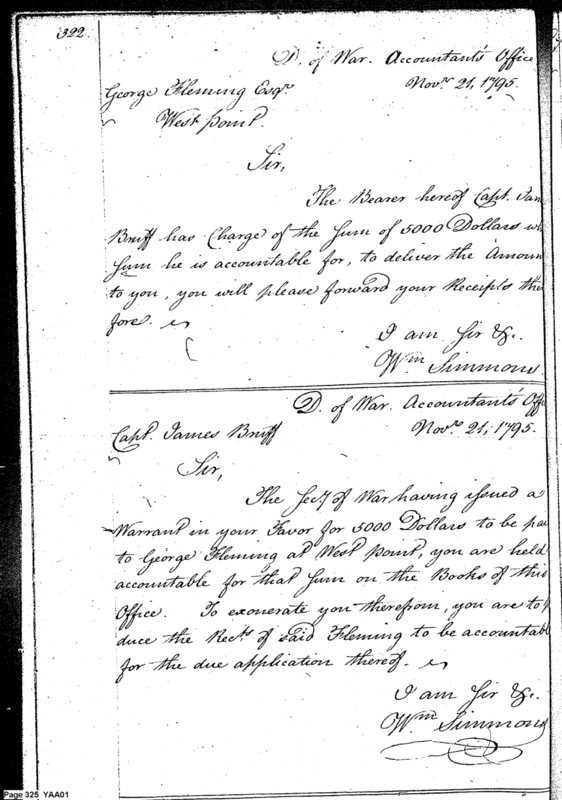 322.
D. of War. Accountant's Office
Novr. 21, 1795.
George Fleming Esqr.
West point.
Sir,
The Bearer hereof Capt. Jam
Bruff has Charge of the Sum of 5000 Dollars wh
Sum he is accountable for, to deliver the Amoun
to you, you will please forward your Receipts ther
fore.
I am Sir &c.
Wm Simmons
D. of War. Accountants Offi
Novr. 21, 1795.
Capt. James Bruff
Sir,
The Secy of War having issued a
Warrant in your Favor for 5000 Dollars to be pai
to George Fleming at West point, you are held
accountable for that Sum on the Books of this
Office. To exonerate you therefrom, you are to
duce the Rects. of said Fleming to be accountabl
for the due application thereof.
I am Sir &c.
Wm Simmons
Page 325 YAA01